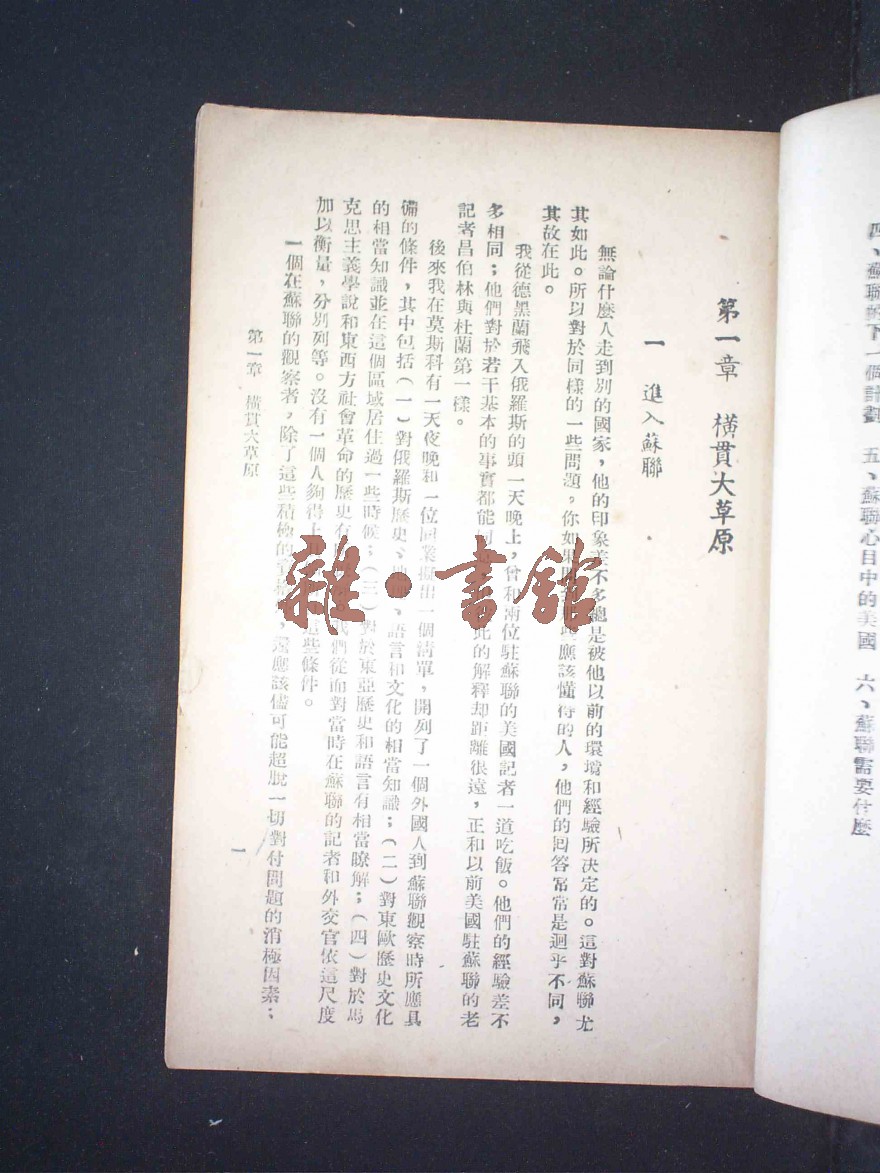 四、蘇聯的下一個計劃 五、蘇聯心目中的美國 六、蘇聯需要什麼
第一章 橫貫大草原
一 進入蘇聯
無論什麼人走到別的國家，他的印象差不多總是被他以前的環境和經驗所決定的。這對蘇聯尤
其如此。所以對於同樣的一些問題，你如果應該懂得的人，他們的回答常常是迴乎不同，
其故在此。
我從德黑蘭飛入俄羅斯的頭一天晚上，曾和兩位駐蘇聯的美國記者一道吃飯。他們的經驗差不
多相同；他們對於若干基本的事實都能此的解釋却距離很遠，正和以前美國駐蘇聯的老
記者昌伯林與杜蘭第一樣。
後來我在莫斯科有一天夜晚和一位同業擬出一個清單，開列了一個外國人到蘇聯觀察時所應具
備的條件，其中包括（一）對俄羅斯歷史、地理、語言和文化的相當知識；（二）對東歐歷史文化
的相當知識並在這個區域居住過一些時候；（三）對於東亞歷史和語言有相當瞭解；（四）對於馬
克思主義學說和東西方社會革命的歷史有我們從而對當時在蘇聯的記者和外交官依這尺度
加以衡量，分別列等。沒有一個人夠得上這些條件。
一個在蘇聯的觀察者，除了這些積極的還應該儘可能超脫一切對付問題的消極因素；
第一章 橫貫大草原
一
雜·書館